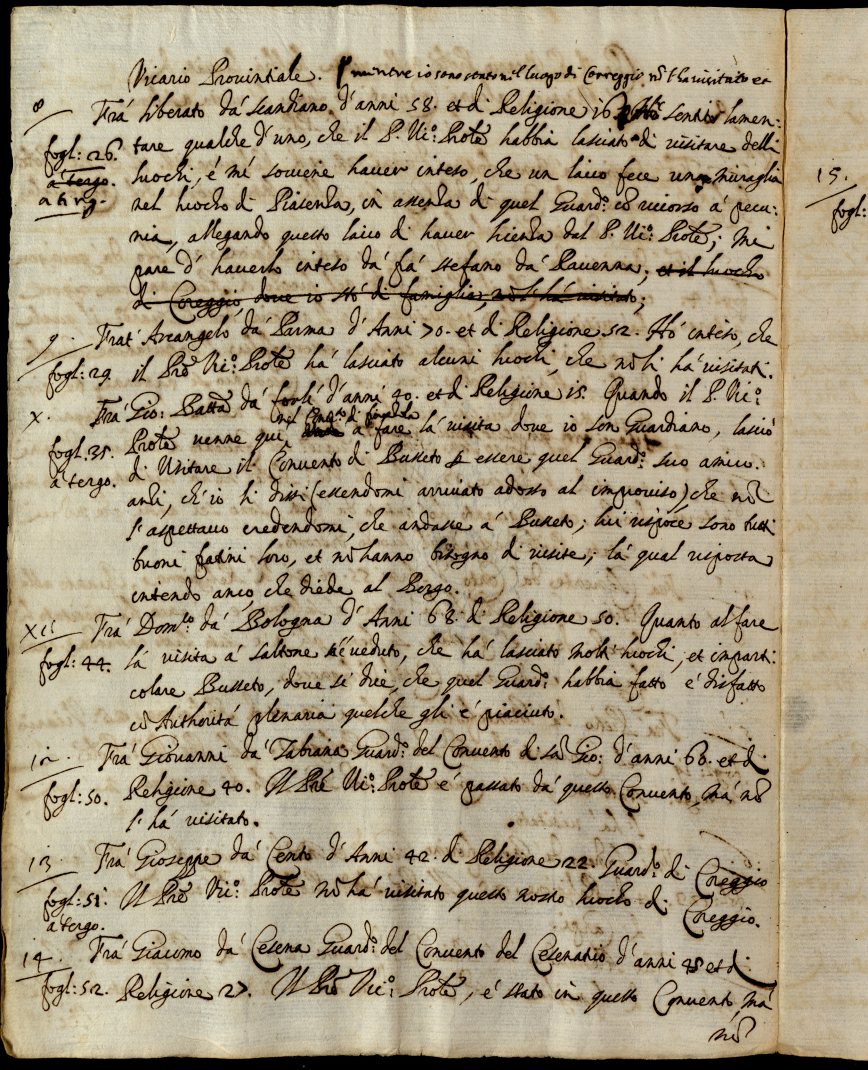 Vicario Provintiale. mentre io sono stato nel luogo di Correggio nõ l'ha visitato et
8 Frà liberato dà scandiano d'anni 58. et di Religione 16. Hò sentito lamen:
fogl: 26. tare qualche d'uno, che il P. Vic:º Prõle habbia lasciato di visitare delli
à tergo. luochi, é mi soviene haver inteso, che un laico fece una muraglia
à terg. nel luocho di Piasenza, in assenza di quel Guard:º cõ ricorso á pecu:
nia, allegando questo laico di haver licenza dal P. Vic:º Prõle; mi
pare d'haverlo inteso dá frá stefano dá Ravenna; et il luocho
di Coreggio dove io stó di famiglia, nõ l'há visitato;
9. Frat' Arcangelo dá Parma d'Anni 70. et di Religione 52. Hó inteso, che
fogl: 29. il Prẽ Vic:º Prõle há lasciato alcuni luochi, che nõ li há visitati.
X. Frá Gio: Batta dá forlí d'anni 40. et di Religione 18. Quando il P. Vic:º
fogl: 35. Prõle venne qui á fare la visita dove io son Guardiano, lasció
á tergo. di visitare il Convento di Busseto p essere quel Guard:º suo amico.
anzi, ch'io li dissi (essendomi arrivato adosso al improviso) che nõ
l'aspettavo credendomi, che andasse á Busseto; lui rispoce sono tutti
buoni fatini loro, et nõ hanno bisogno di visite; la qual risposta
intendo anco che diede al Borgo.
xii Frá Dom:co dá Bologna d'Anni 68. di Religione 50. Quanto al fare
fogl: 44. lá visita á saltone s'é veduto, che há lasciato molti luochi, et imparti:
colare Busseto, dove si dice, che quel Guard:º habbia fatto é disfatto
cõ Authoritá plenaria quelche gli é piaciuto.
12. Frá Giovanni dá Fabiana Guard:º del Convento di sã Gio: d'anni 60. et di
fogl: 50. Religione 40. Il Prẽ Vic:º Prõle é passato dá questo Convento, má nõ
l'há visitato.
13. Frá Gioseppe dá Cento d'Anni 42. di Religione 22. Guard:º di Coreggio
fogl: 51. Il Prẽ Vic:º Prõle nõ há visitato questo nostro luocho di Coreggio.
á tergo.
14. Frá Giacomo dá Cesena Guard:º del Convento del Cesenatico d'anni 48 et di
fogl: 52. Religione 27. Il Prẽ Vic:º Prõle, é stato in questo Convento, má
nõ
15.
fogl: